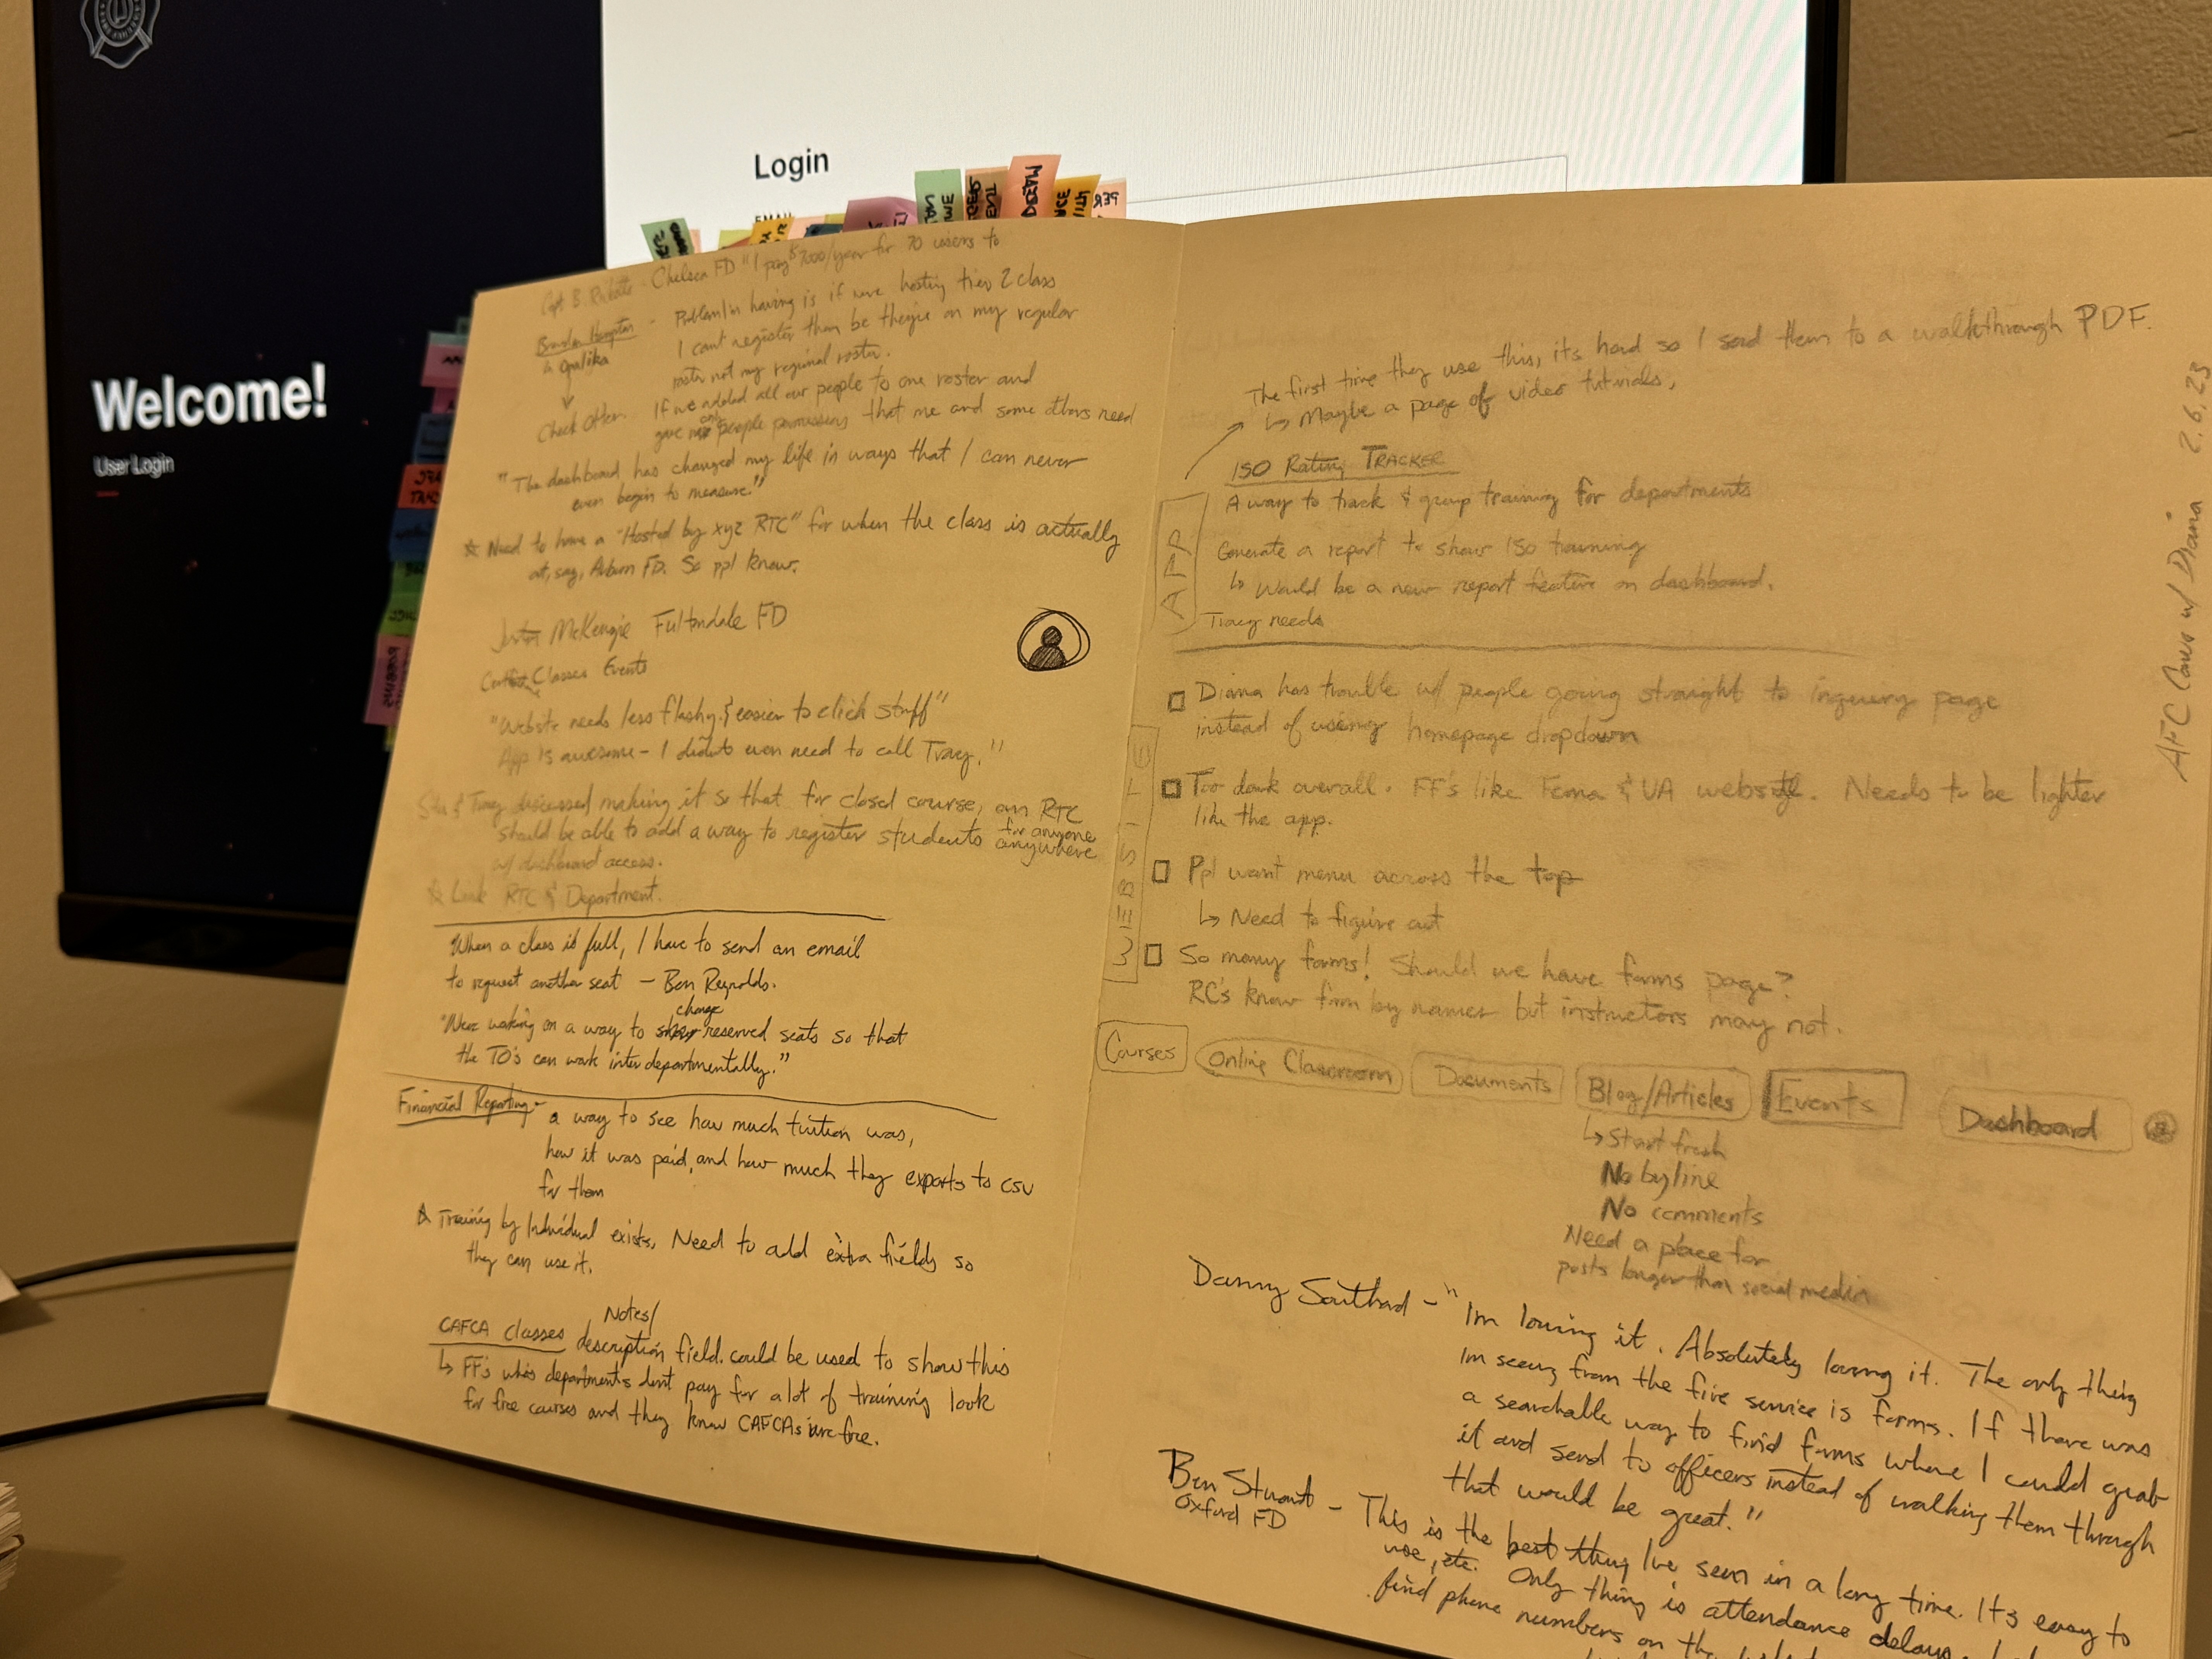 Welcome!
User Login
Login
Chelsea FD "I pay $7000/year for 70 users to
Problem I'm having is if we're hosting tier 2 class
I can't register them bc they're on my regular
roster not my regional roster.
in Opelika
Check Other
If we added all our people to one roster and
gave people permissions that me and some others need
"The dashboard has changed my life in ways that I can never
even begin to measure."
☆ Need to have a "Hosted by xyz RTC" for when the class is actually
at, say, Auburn FD. So ppl know.
McKenzie Fultondale FD
Classes Events
"Website needs less flashy & easier to click stuff"
App is awesome - I didn't even need to call Tracy."
& Tracy discussed making it so that for closed course, an RTC
should be able to add a way to register students for anyone anywhere
w/ dashboard access.
☆ Link RTC & Department.
When a class is full, I have to send an email
to request another seat - Ben Reynolds.
"We're working on a way to change reserved seats so that
the TO's can work interdepartmentally."
Financial Reporting - a way to see how much tuition was,
how it was paid, and how much they exports to CSV
for them
☆ Training by Individual exists. Need to add extra fields so
they can use it.
CAFCA classes Notes/description field could be used to show this
↳ FF's who's departments don't pay for a lot of training look
for free courses and they know CAFCAs are free.
AFC Conf w/ Diana 2.6.23
The first time they use this, its hard so I send them to a walkthrough PDF.
↳ Maybe a page of video tutorials,
APP
ISO Rating TRACKER
A way to track & group training for departments
Generate a report to show ISO training
↳ Would be a new report feature on dashboard.
Tracy needs
WEBSITE
□ Diana has trouble w/ people going straight to inquiry page
instead of using homepage dropdown
□ Too dark overall. FF's like Fema & UA website. Needs to be lighter
like the app.
□ Ppl want menu across the top
↳ Need to figure out
□ So many forms! Should we have forms page?
RC's know form by names but instructors may not.
Courses Online Classroom Documents Blog/Articles Events Dashboard
↳ Start fresh
No byline
No comments
Need a place for
posts longer than social media
Danny - "Im loving it. Absolutely loving it. The only thing
Im seeing from the fire service is forms. If there was
a searchable way to find forms where I could grab
it and send to officers instead of walking them through
that would be great."
Ben Stewart
Oxford FD
- This is the best thing I've seen in a long time. It's easy to
use, etc. Only thing is attendance delays
find phone numbers on the